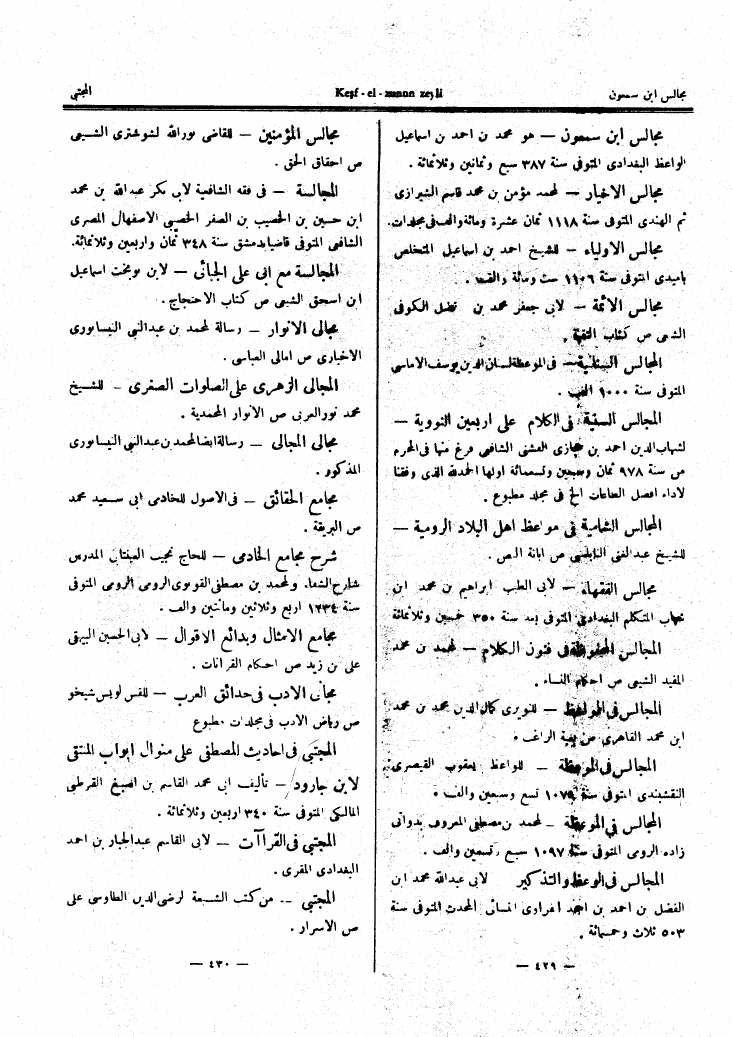 مجالس ابن سمعون
Keşf - el - zunun zeyli
المجتبى
مجالس ابن سمعون — هو محمد بن احمد بن اسماعيل
الواعظ البغدادى المتوفى سنة ٣٨٧ سبع وثمانين وثلاثمائة .
مجالس الاخيار — لمحمد مؤمن بن محمد قاسم الشيرازى
ثم الهندى المتوفى سنة ١١١٨ ثمان عشرة ومائة والف فى مجلدات.
مجالس الاولياء — للشيخ احمد بن اسماعيل المتخلص
باميدى المتوفى سنة ١١٠٦ ست ومائة والف .
مجالس الائمة — لابى جعفر محمد بن فضل الكوفى
الشيعى ص كتاب التقية .
المجالس — فى الموعظة لسان الدين يوسف الاماسى
المتوفى سنة ١٠٠٠ الف .
المجالس السنية فى الكلام على اربعين النووية —
لشهاب الدين احمد بن حجازى الفشنى الشافعى فرغ منها فى المحرم
من سنة ٩٧٨ ثمان وسبعين وتسعمائة اولها الحمدلله الذى وفقنا
لاداء افضل الطاعات الخ فى مجلد مطبوع .
المجالس الشامية فى مواعظ اهل البلاد الرومية —
للشيخ عبدالغنى النابلسى ص ابانة النص .
مجالس الفقهاء — لابى الطيب ابراهيم بن محمد ابن
شهاب المتكلم البغدادى المتوفى بعد سنة ٣٥٠ خمسين وثلاثمائة
المجالس المحفوظة فى فنون الكلام — لمحمد بن محمد
المفيد الشيعى ص احكام النساء .
المجالس فى المواعظ — للنويرى كمال الدين محمد بن محمد
ابن محمد القاهرى ص بغية الراغب .
المجالس فى الموعظة — للواعظ يعقوب القيصرى
النقشبندى المتوفى سنة ١٠٧٩ تسع وسبعين والف .
المجالس فى الموعظة — لمحمد بن مصطفى المعروف بدواتى
زاده الرومى المتوفى سنة ١٠٩٧ سبع وتسعين والف .
المجالس فى الوعظ والتذكير لابى عبدالله محمد ابن
الفضل بن احمد بن احمد الفراوى المحدث المتوفى سنة
٥٠٣ ثلاث وخمسمائة .
— ٤٢٩ —
مجالس المؤمنين — للقاضى نورالله الشوشترى الشيعى
ص احقاق الحق .
المجالسة — فى فقه الشافعية لابى بكر عبدالله بن محمد
ابن حسين بن الخصيب بن الصقر الخصيبى الاصفهانى المصرى
الشافعى المتوفى قاضيا بدمشق سنة ٣٤٨ ثمان واربعين وثلاثمائة.
المجالسة مع ابى على الجبائى — لابن نوبخت اسماعيل
ابن اسحق الشيعى ص كتاب الاحتجاج .
مجالى الانوار — رسالة لمحمد بن عبدالنبى النيسابورى
الاخبارى ص امالى العباسى .
المجالى الزهرى على الصلوات الصغرى — للشيخ
محمد نورالعربى ص الانوار المحمدية .
مجالى المجالى — رسالة ايضا لمحمد بن عبدالنبى النيسابورى
المذكور .
مجامع الحقائق — فى الاصول للخادمى ابى سعيد محمد
ص البريقة .
شرح مجامع الخادمى — للحاج نجيب العينتابى المدرس
شارح الشفاء ولمحمد بن مصطفى القونوى الرومى المتوفى
سنة ١٢٣٤ اربع وثلاثين ومائتين والف .
مجامع الامثال وبدائع الاقوال — لابى الحسين البيهقى
على بن زيد ص احكام القرانات .
مجانى الادب فى حدائق العرب — للقس لويس شيخو
ص رياض الادب فى مجلدات مطبوع
المجتبى فى احاديث المصطفى على منوال ابواب المنتقى
لابن جارود — تأليف ابى محمد القاسم بن اصبغ القرطبى
المالكى المتوفى سنة ٣٤٠ اربعين وثلاثمائة .
المجتبى فى القراآت — لابى القاسم عبدالجبار بن احمد
البغدادى المقرى .
المجتبى — من كتب الشيعة لرضى الدين الطاوسى على
ص الاسرار .
— ٤٣٠ —